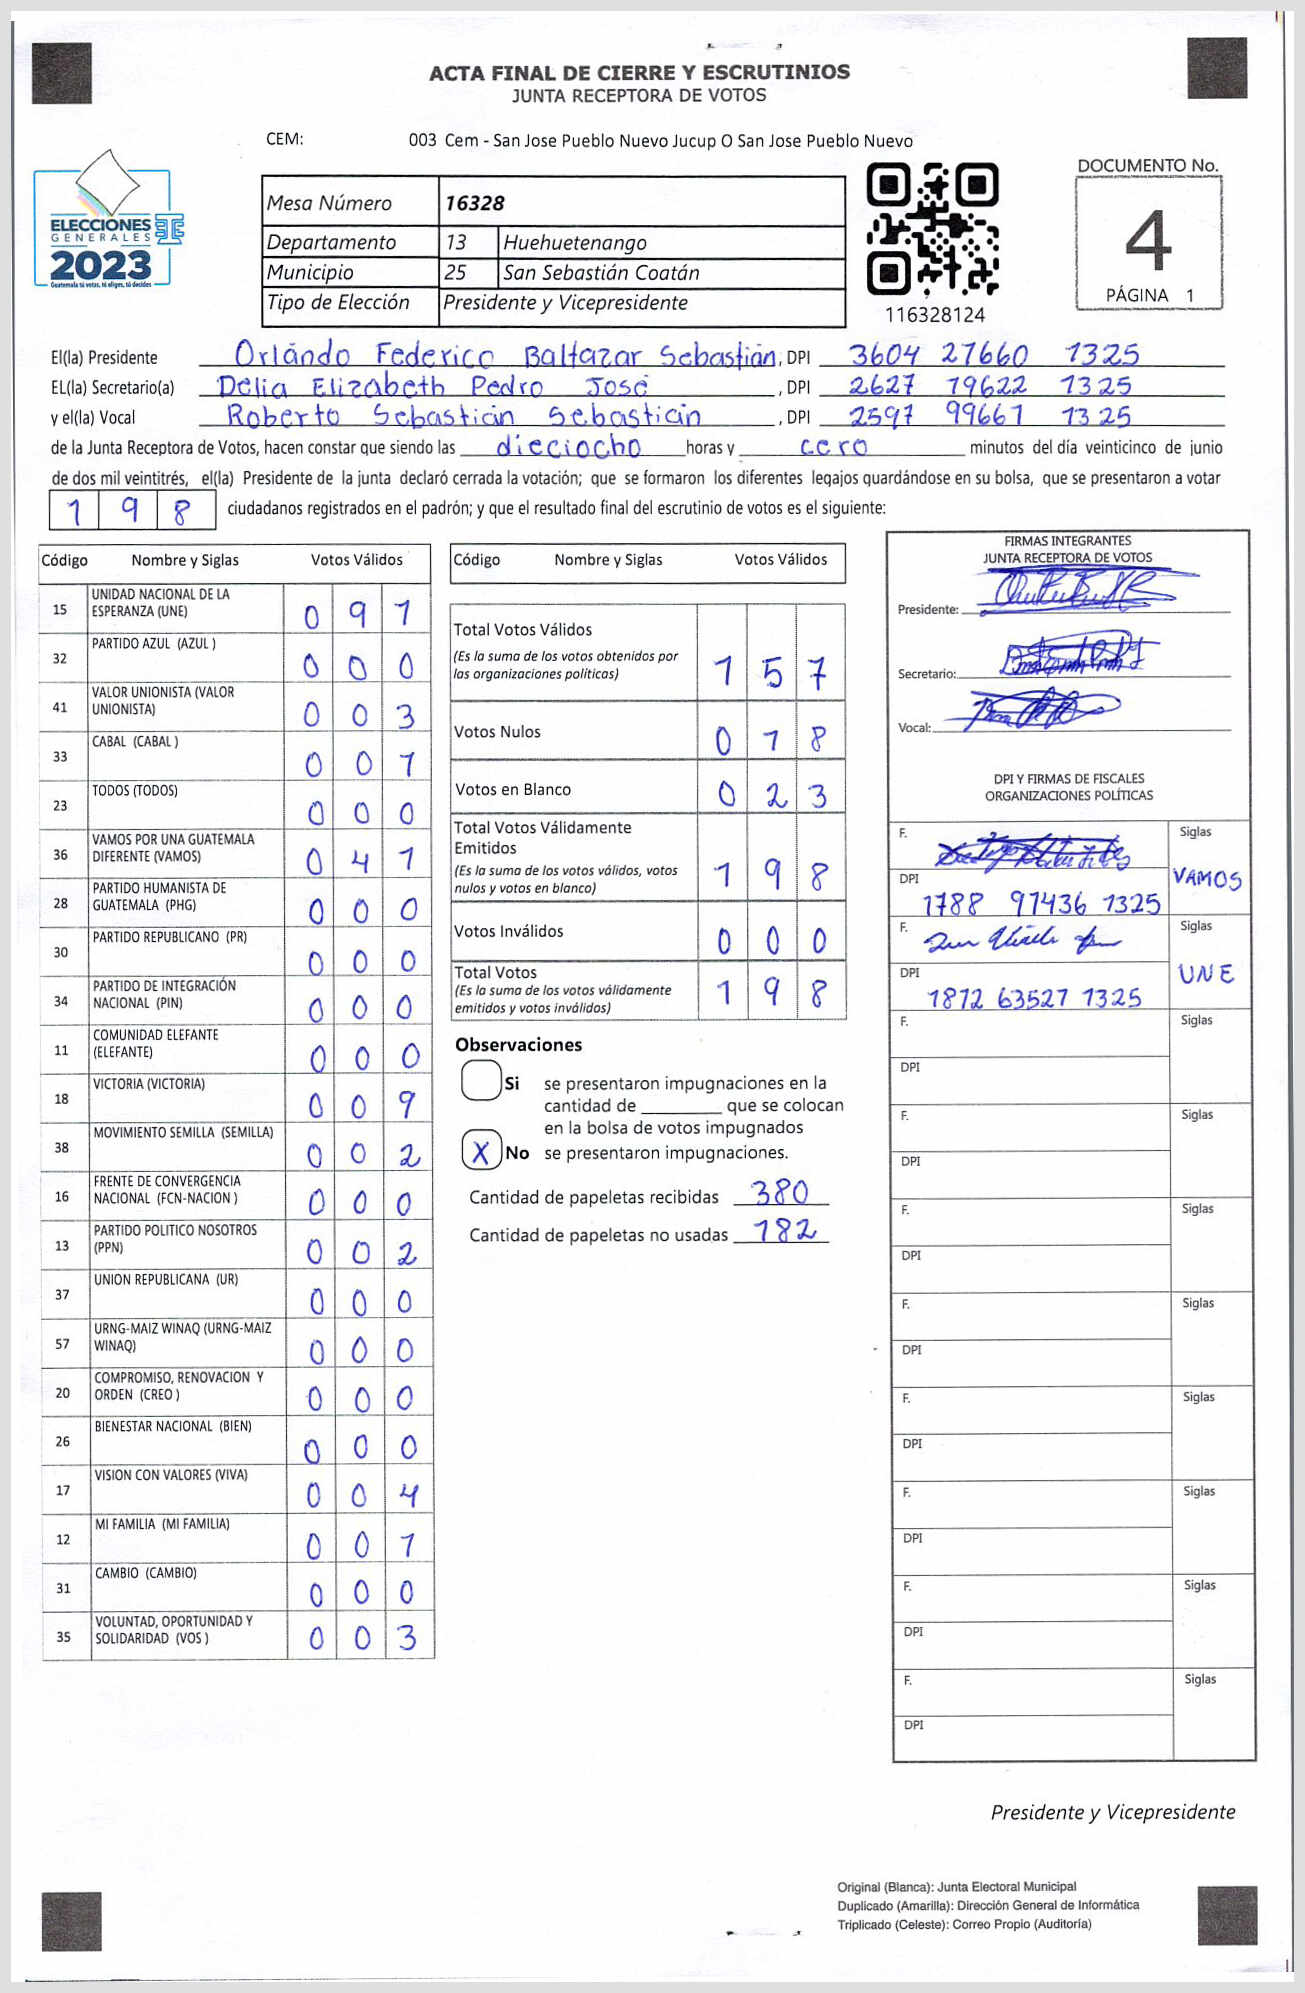 ACTA FINAL DE CIERRE Y ESCRUTINIOS
JUNTA RECEPTORA DE VOTOS
CEM: 003 Cem - San Jose Pueblo Nuevo Jucup O San Jose Pueblo Nuevo
ELECCIONES
GENERALES
2023
Guatemala tú votas, tú eliges, tú decides
Mesa Número 16328
Departamento 13 Huehuetenango
Municipio 25 San Sebastián Coatán
Tipo de Elección Presidente y Vicepresidente
116328124
DOCUMENTO No.
4
PÁGINA 1
El(la) Presidente Orlándo Federico Baltazar Sebastián, DPI 3604 27660 1325
EL(la) Secretario(a) Delia Elizabeth Pedro José, DPI 2627 19622 1325
y el(la) Vocal Roberto Sebastián Sebastián, DPI 2597 99661 1325
de la Junta Receptora de Votos, hacen constar que siendo las dieciocho horas y cero minutos del día veinticinco de junio
de dos mil veintitrés, el(la) Presidente de la junta declaró cerrada la votación; que se formaron los diferentes legajos guardándose en su bolsa, que se presentaron a votar
198 ciudadanos registrados en el padrón; y que el resultado final del escrutinio de votos es el siguiente:
Código Nombre y Siglas Votos Válidos
15 UNIDAD NACIONAL DE LA ESPERANZA (UNE) 0 9 1
32 PARTIDO AZUL (AZUL ) 0 0 0
41 VALOR UNIONISTA (VALOR UNIONISTA) 0 0 3
33 CABAL (CABAL ) 0 0 1
23 TODOS (TODOS) 0 0 0
36 VAMOS POR UNA GUATEMALA DIFERENTE (VAMOS) 0 4 1
28 PARTIDO HUMANISTA DE GUATEMALA (PHG) 0 0 0
30 PARTIDO REPUBLICANO (PR) 0 0 0
34 PARTIDO DE INTEGRACIÓN NACIONAL (PIN) 0 0 0
11 COMUNIDAD ELEFANTE (ELEFANTE) 0 0 0
18 VICTORIA (VICTORIA) 0 0 9
38 MOVIMIENTO SEMILLA (SEMILLA) 0 0 2
16 FRENTE DE CONVERGENCIA NACIONAL (FCN-NACION ) 0 0 0
13 PARTIDO POLITICO NOSOTROS (PPN) 0 0 2
37 UNION REPUBLICANA (UR) 0 0 0
57 URNG-MAIZ WINAQ (URNG-MAIZ WINAQ) 0 0 0
20 COMPROMISO, RENOVACION Y ORDEN (CREO ) 0 0 0
26 BIENESTAR NACIONAL (BIEN) 0 0 0
17 VISION CON VALORES (VIVA) 0 0 4
12 MI FAMILIA (MI FAMILIA) 0 0 1
31 CAMBIO (CAMBIO) 0 0 0
35 VOLUNTAD, OPORTUNIDAD Y SOLIDARIDAD (VOS ) 0 0 3
Código Nombre y Siglas Votos Válidos
Total Votos Válidos
(Es la suma de los votos obtenidos por
las organizaciones politicas) 1 5 7
Votos Nulos 0 1 8
Votos en Blanco 0 2 3
Total Votos Válidamente
Emitidos
(Es la suma de los votos válidos, votos
nulos y votos en blanco) 1 9 8
Votos Inválidos 0 0 0
Total Votos
(Es la suma de los votos válidamente
emitidos y votos inválidos) 1 9 8
Observaciones
Si se presentaron impugnaciones en la
cantidad de ________ que se colocan
en la bolsa de votos impugnados
X No se presentaron impugnaciones.
Cantidad de papeletas recibidas 380
Cantidad de papeletas no usadas 182
FIRMAS INTEGRANTES
JUNTA RECEPTORA DE VOTOS
Presidente:
Secretario:
Vocal:
DPI Y FIRMAS DE FISCALES
ORGANIZACIONES POLÍTICAS
F. Siglas
VAMOS
DPI
1788 97436 1325
F. Siglas
UNE
DPI
1872 63527 1325
F. Siglas
DPI
F. Siglas
DPI
F. Siglas
DPI
F. Siglas
DPI
F. Siglas
DPI
F. Siglas
DPI
F. Siglas
DPI
F. Siglas
DPI
Presidente y Vicepresidente
Original (Blanca): Junta Electoral Municipal
Duplicado (Amarilla): Dirección General de Informática
Triplicado (Celeste): Correo Propio (Auditoría)